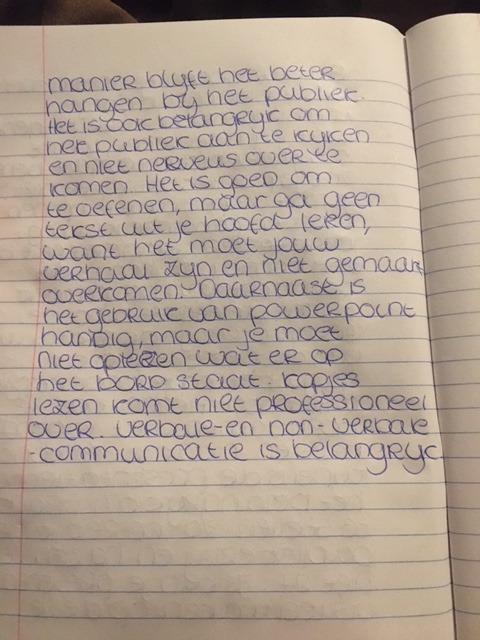 manier blijft het beter
hangen bij het publiek.
Het is ook belangrijk om
het publiek aan te kijken
en niet nerveus over te
komen. Het is goed om
te oefenen, maar ga geen
tekst uit je hoofd leren,
want het moet jouw
verhaal zijn en niet gemaakt
overkomen. Daarnaast is
het gebruik van powerpoint
handig, maar je moet
niet oplezen wat er op
het bord staat. Kopjes
lezen komt niet professioneel
over. Verbale-en non-verbale
-communicatie is belangrijk